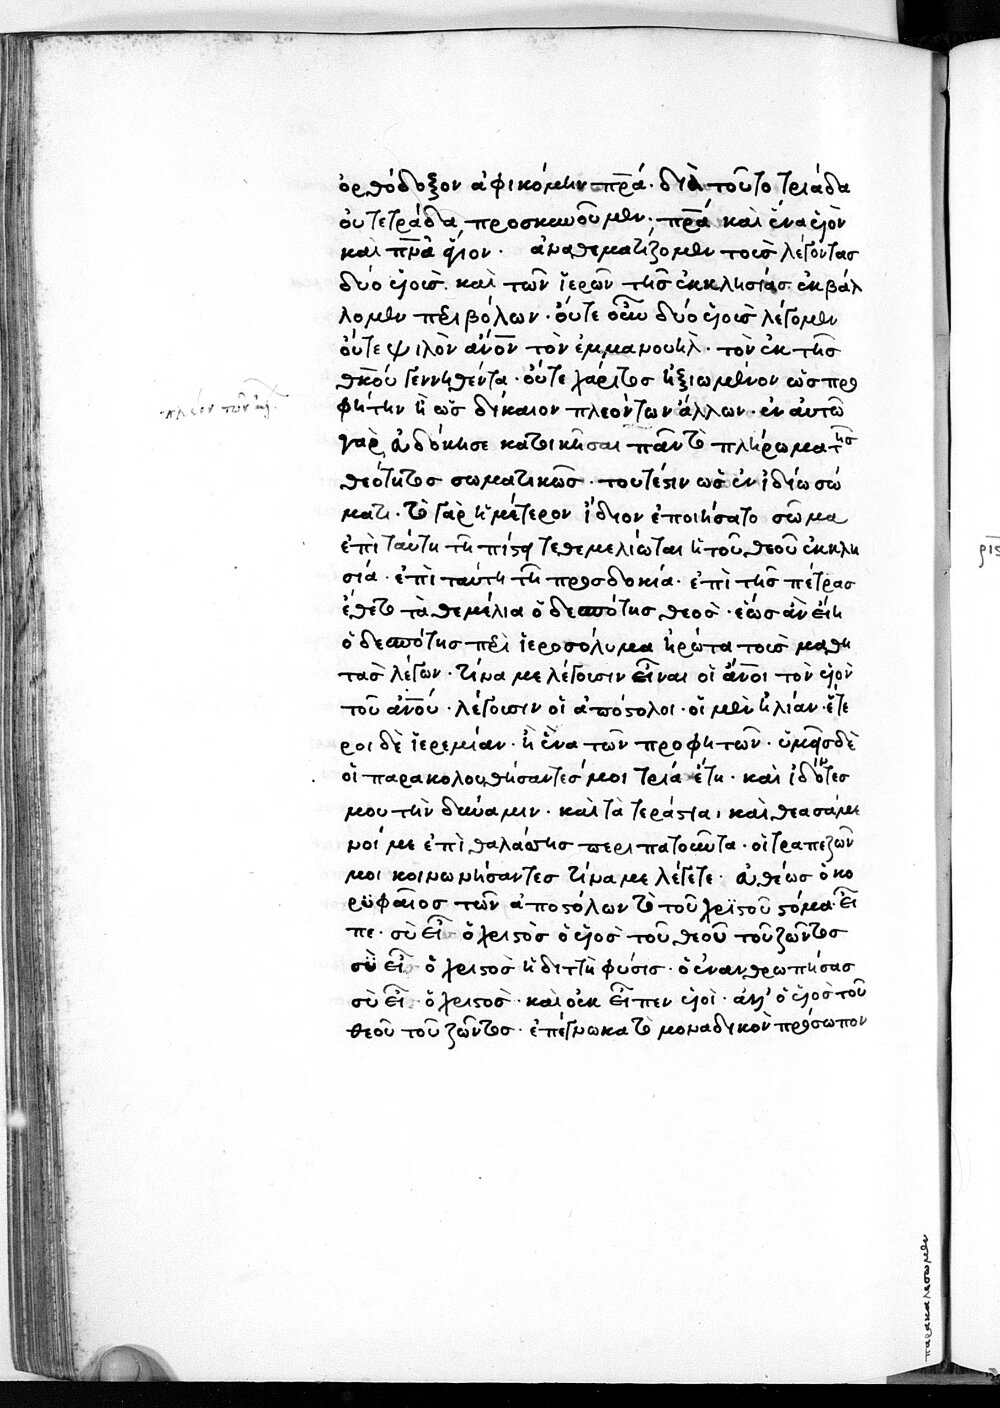 ὀρθόδοξον ἀφικόμην πρ̅α̅. διὰ τοῦτο τριάδα
οὐ τετράδα προσκυνοῦμεν· πρ̅α̅ καὶ ἕνα υἱὸν
καὶ πν̅α̅ ἅγιον. ἀναθεματίζομεν τοὺς λέγοντας
δύο υἱοὺς. καὶ τῶν ἱερῶν τῆς ἐκκλησίας ἐκβάλ
λομεν περιβόλων. οὔτε οὖν δύο υἱοὺς λέγομεν
οὔτε ψιλὸν ἄν̅ο̅ν̅ τὸν ἐμμανουὴλ. τὸν ἐκ τῆς
θκ̅ου γεννηθέντα. οὔτε χάριτος ἠξιωμένον ὡς προ
φήτην ἢ ὡς δίκαιον πλεόντων ἄλλων. ἐν αὐτῶ
γὰρ εὐδόκησε κατοικῆσαι πᾶν τὸ πλήρωμα τῆς
θεότητος σωματικῶς. τουτέστιν ὡς ἐν ἰδίω σώ
ματι. τὸ γὰρ ἡμέτερον ἴδιον ἐποιήσατο σῶμα
ἐπὶ ταύτη τῆ πίστει τεθεμελίωται ἡ τοῦ θεοῦ ἐκκλη
σία. ἐπὶ ταύτη τῆ προσδοκία. ἐπὶ τῆς πέτρας
ἔθετο τὰ θεμέλια ὁ δεσπότης θεος. ἕως ἂν εἴη
ὁ δεσπότης περὶ ἱεροσόλυμα ἠρώτα τους μαθη
τας λέγων. τίνα με λέγουσιν εἶναι οἱ ἄν̅ο̅ι̅ τὸν υἱὸν
τοῦ ἀν̅ο̅υ̅. λέγουσιν οἱ ἀπόστολοι. οἱ μὲν ἡλίαν. ἕτε
ροι δὲ ἱερεμίαν. ἢ ἕνα τῶν προφητῶν. ὑμεῖς δὲ
οἱ παρακολουθήσαντές μοι τρία ἔτη. καὶ ἰδόντες
μου τὴν δύναμιν. καὶ τὰ τεράστια, καὶ θεασάμε
νοί με ἐπὶ θαλάσσης περιπατοῦντα. οἱ τραπεζῶν
μοι κοινωνήσαντες τίνα με λέγετε. εὐθέως ὁ κο
ρυφαῖος τῶν ἀποστόλων τὸ τοῦ χριστοῦ στόμα. εἶ
πε. σὺ εἶ ὁ χριστὸς ὁ υἱὸς τοῦ θεοῦ τοῦ ζῶντος
σὺ εἶ ὁ χριστὸς ἡ διττὴ φύσις. ὁ ἐνανθρωπήσας
σὺ εἶ ὁ χριστὸς. καὶ οὐκ εἶπεν υἱοὶ. ἀλλ' ὁ υἱὸς τοῦ
θεοῦ τοῦ ζῶντος. ἐπέγνωκα τὸ μοναδικὸν πρόσωπον
πλέον τῶν
παρακαλέσωμεν